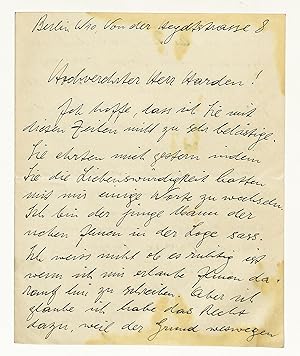 Berlin W10, Von der Heydtstrasse 8
Hochverehrter Herr Harden!
Ich hoffe, dass ich Sie mit
diesen Zeilen nicht zu sehr belästige.
Sie ehrten mich gestern indem
Sie die Liebenswürdigkeit hatten
mit mir einige Worte zu wechseln.
Ich bin der junge Mann der
neben Ihnen in der Loge sass.
Ich weiss nicht ob es richtig ist
wenn ich mir erlaube Ihnen da-
rauf hin zu schreiben. Aber ich
glaube ich habe das Recht
dazu, weil der Grund weswegen